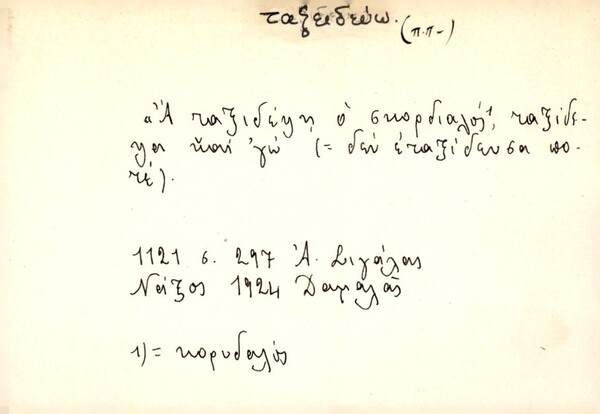 ταξειδεύω. (π.π-)
«Ἂ ταξιδέψῃ ὁ σκορδιαλός¹, ταξίδε-
ψα κ̓αὶ ᾿γώ (= δὲν ἐταξίδευσα πο-
τέ).
1121 σ. 297 Ἀ. Σιγάλας
Νάξος 1924 Δαμαλᾶς
1) = κορυδαλός